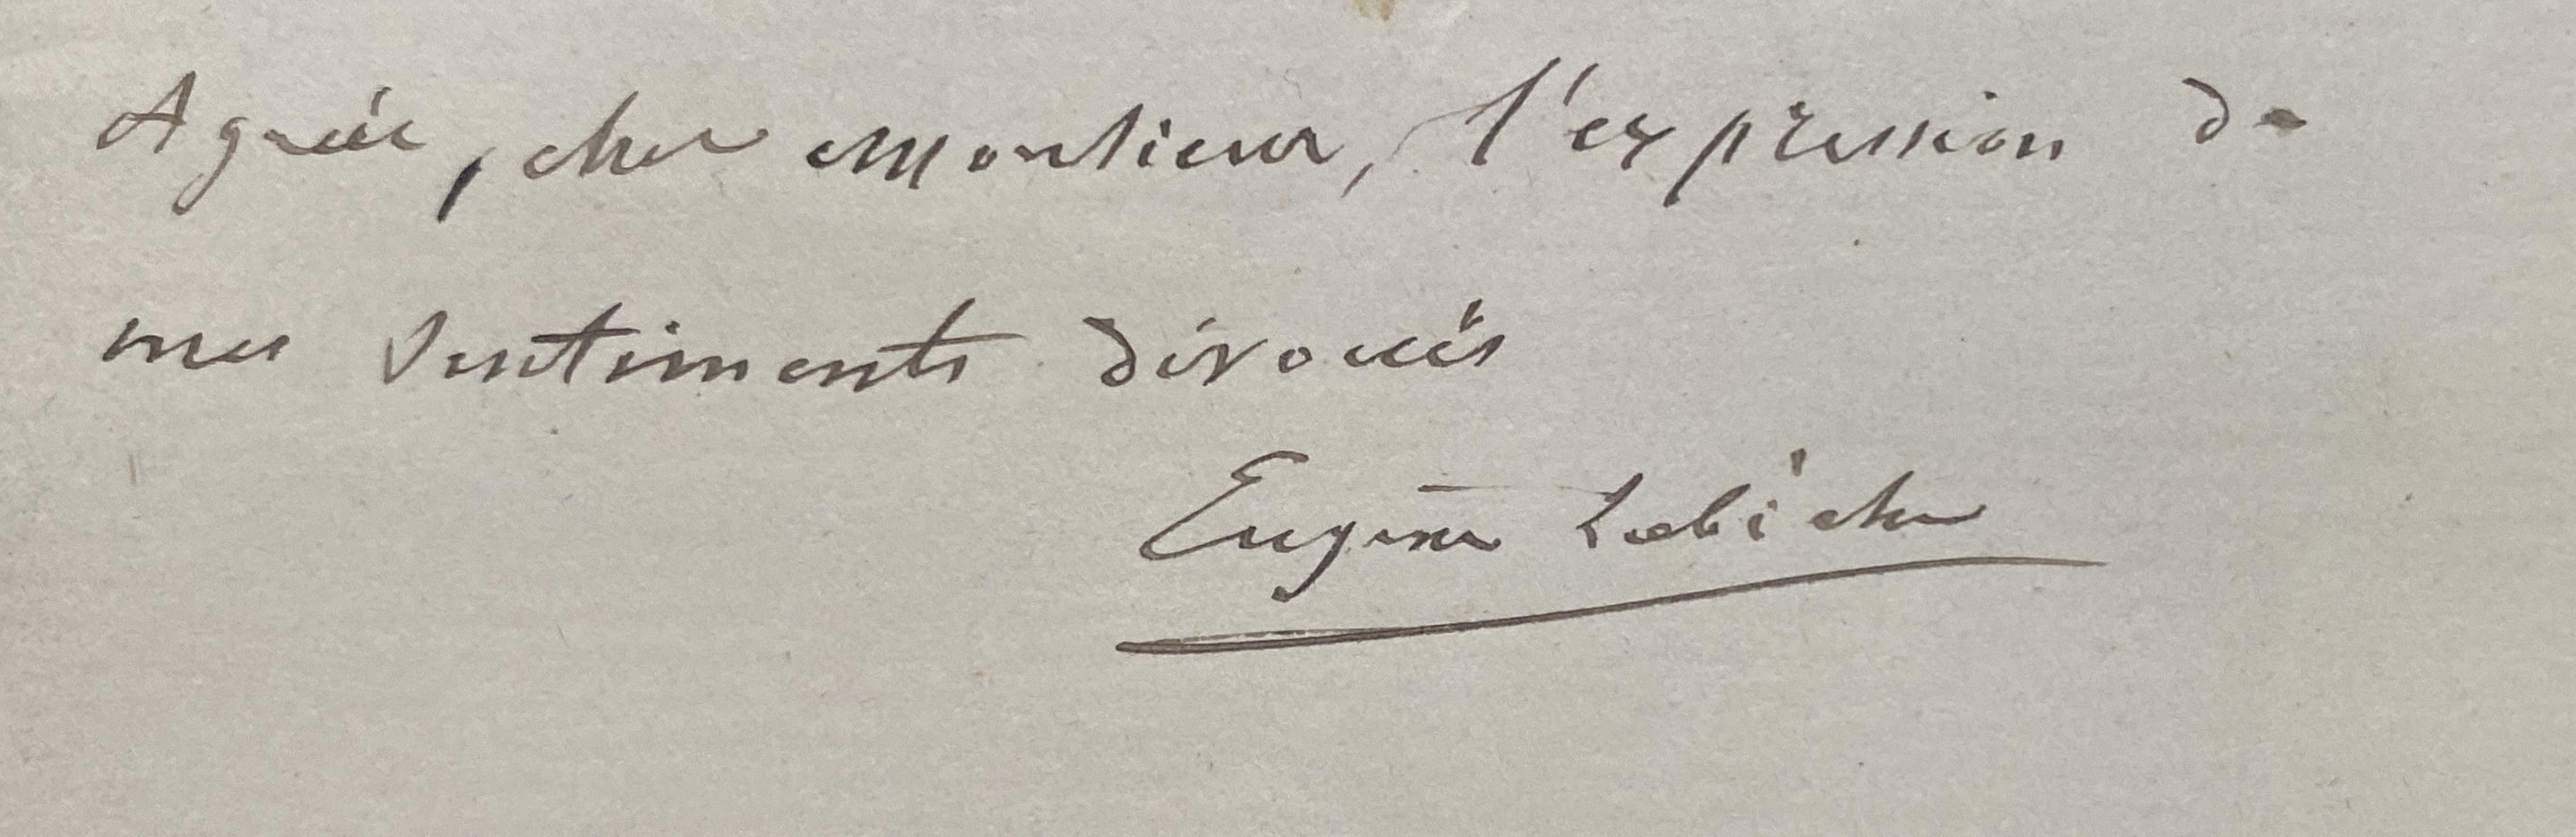 Agréez, cher Monsieur, l'expression de
mes sentiments dévoués
Eugène Labiche